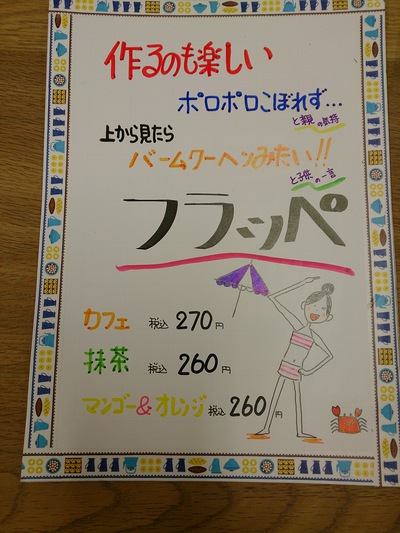 作るのも楽しい
ポロポロこぼれず…
と親の気持
上から見たら
バームクーヘンみたい!!
と子供の一言
フラッペ
カフェ 税込 270円
抹茶 税込 260円
マンゴー&オレンジ 税込 260円